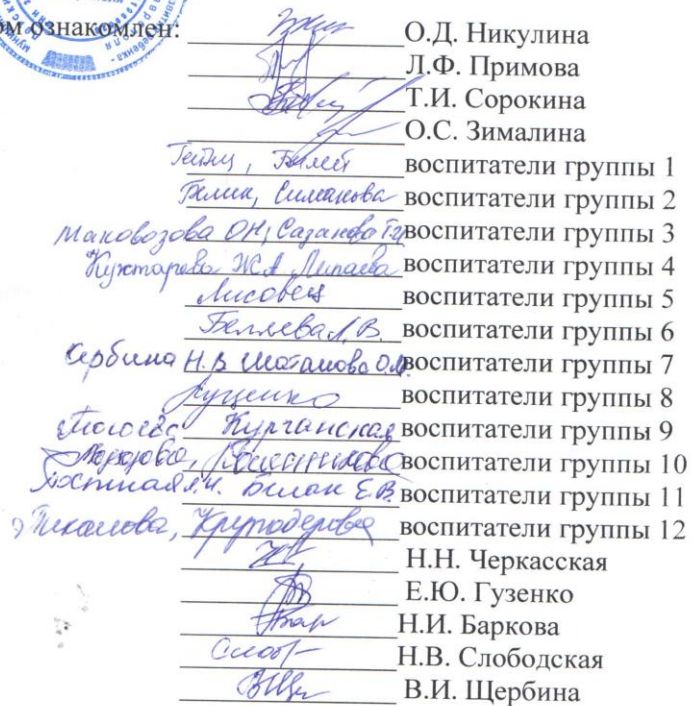 ом ознакомлен: О.Д. Никулина
Л.Ф. Примова
Т.И. Сорокина
О.С. Зималина
воспитатели группы 1
Белик, Симакова воспитатели группы 2
Маковозова ОН, Сазанова воспитатели группы 3
Кухтарова Ж.А Липаева воспитатели группы 4
Лисовец воспитатели группы 5
Беляева Л.В. воспитатели группы 6
Сербина Н.В Шаталова О.М. воспитатели группы 7
Луценко воспитатели группы 8
Курганская воспитатели группы 9
воспитатели группы 10
Билан Е.В. воспитатели группы 11
воспитатели группы 12
Н.Н. Черкасская
Е.Ю. Гузенко
Н.И. Баркова
Н.В. Слободская
В.И. Щербина